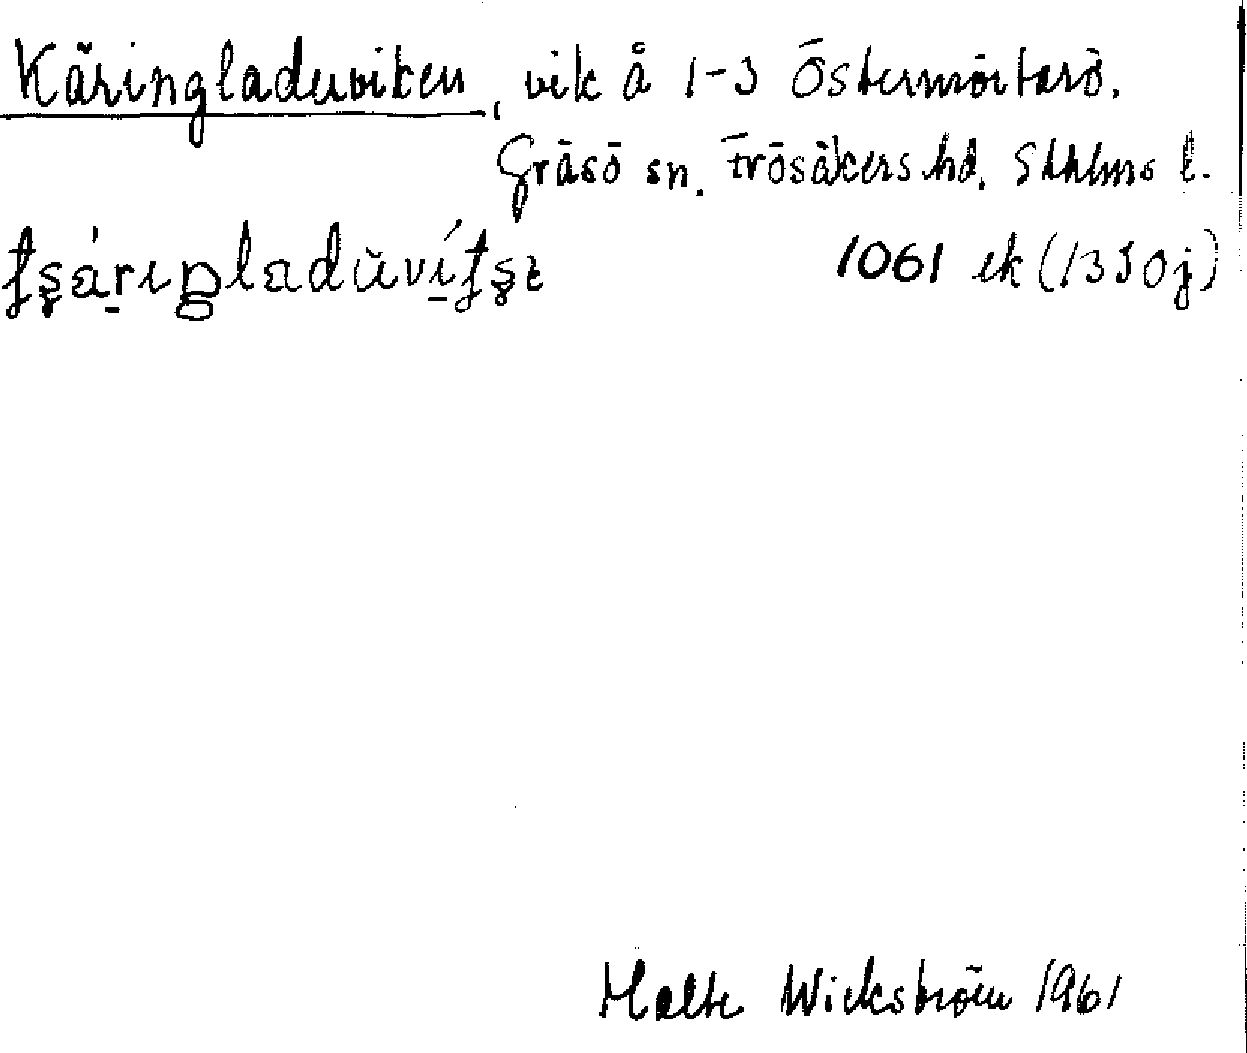 Käringladuviken, vik å 1-3 Östermörtarö.
Gräsö sn. Frösåkers hd. Sthlms l.
1061 ek (13I0j)
Malte Wickström 1961